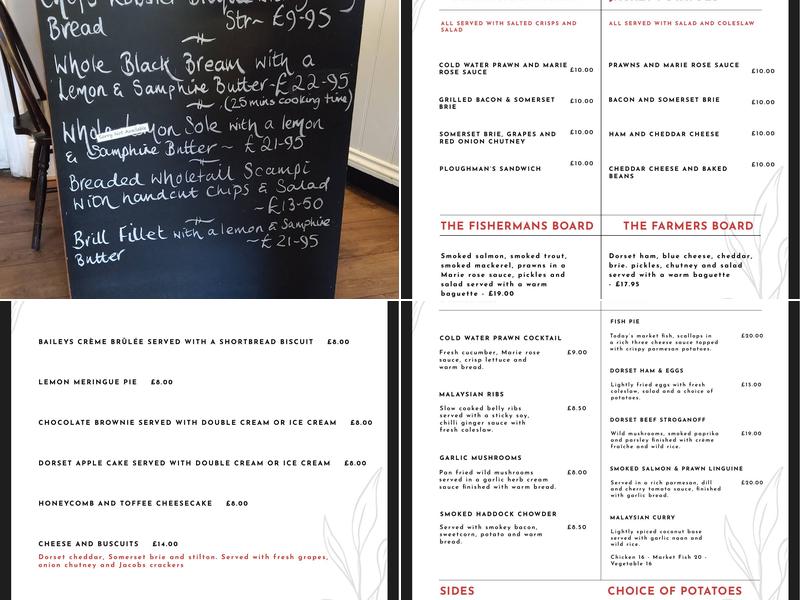 Bread Str~ £9-95
Whole Black Bream with a
Lemon & Samphire Butter-£22-95
(25mins cooking time)
Whole Lemon Sole with a lemon
& Samphire Butter ~ £21-95
Breaded wholetail Scampi
with handcut chips & Salad
~£13-50
Brill Fillet with a lemon & Samphire
Butter ~£21-95
ALL SERVED WITH SALTED CRISPS AND
SALAD
COLD WATER PRAWN AND MARIE
ROSE SAUCE £10.00
GRILLED BACON & SOMERSET
BRIE £10.00
SOMERSET BRIE, GRAPES AND
RED ONION CHUTNEY £10.00
PLOUGHMAN'S SANDWICH £10.00
ALL SERVED WITH SALAD AND COLESLAW
PRAWNS AND MARIE ROSE SAUCE £10.00
BACON AND SOMERSET BRIE £10.00
HAM AND CHEDDAR CHEESE £10.00
CHEDDAR CHEESE AND BAKED
BEANS £10.00
THE FISHERMANS BOARD
Smoked salmon, smoked trout,
smoked mackerel, prawns in a
Marie Rose sauce, pickles and
salad served with a warm
baguette - £19.00
THE FARMERS BOARD
Dorset ham, blue cheese, cheddar,
brie. pickles, chutney and salad
served with a warm baguette
- £17.95
BAILEYS CRÈME BRÛLÉE SERVED WITH A SHORTBREAD BISCUIT £8.00
LEMON MERINGUE PIE £8.00
CHOCOLATE BROWNIE SERVED WITH DOUBLE CREAM OR ICE CREAM £8.00
DORSET APPLE CAKE SERVED WITH DOUBLE CREAM OR ICE CREAM £8.00
HONEYCOMB AND TOFFEE CHEESECAKE £8.00
CHEESE AND BUSCUITS £14.00
Dorset cheddar, Somerset brie and stilton. Served with fresh grapes,
onion chutney and Jacobs crackers
COLD WATER PRAWN COCKTAIL
Fresh cucumber, Marie rose £9.00
sauce, crisp lettuce and
warm bread.
MALAYSIAN RIBS
Slow cooked belly ribs £8.50
served with a sticky soy,
chilli ginger sauce with
fresh coleslaw.
GARLIC MUSHROOMS
Pan fried wild mushrooms £8.00
served in a garlic herb cream
sauce finished with warm bread.
SMOKED HADDOCK CHOWDER
Served with smokey bacon, £8.50
sweetcorn, potato and warm
bread.
SIDES
FISH PIE
Today's market fish, scallops in £20.00
a rich three cheese sauce topped
with crispy parmesan potatoes.
DORSET HAM & EGGS
Lightly fried eggs with fresh £15.00
coleslaw, salad and a choice of
potatoes.
DORSET BEEF STROGANOFF
Wild mushrooms, smoked paprika £19.00
and parsley finished with crème
fraîche and wild rice.
SMOKED SALMON & PRAWN LINGUINE
Served in a rich parmesan, dill £20.00
and cherry tomato sauce, finished
with garlic bread.
MALAYSIAN CURRY
Lightly spiced coconut base
served with garlic naan and
wild rice.
Chicken 16 - Market Fish 20 -
Vegetable 16
CHOICE OF POTATOES